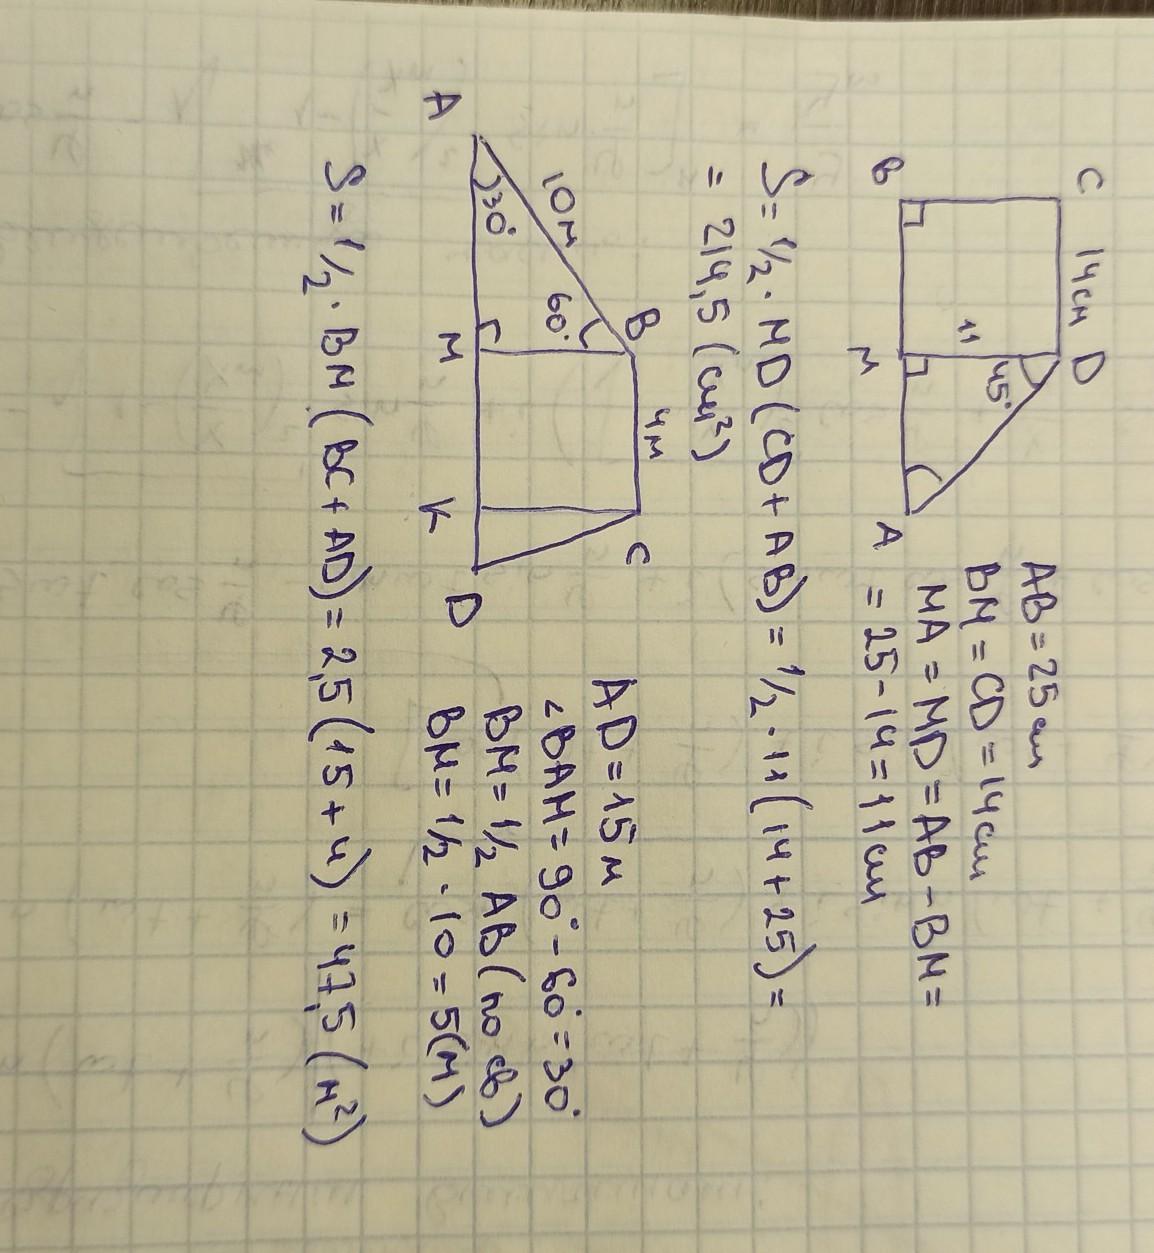 C 14см D
11
45°
B M A
AB=25см
BM=CD=14см
MA=MD=AB-BM=
=25-14=11см
S=1/2·MD(CD+AB)=1/2·11(14+25)=
=214,5(см²)
B 4м C
10м
60°
30°
A M K D
AD=15м
∠BAM=90°-60°=30°
BM=1/2 AB(по св)
BM=1/2·10=5(м)
S=1/2·BM(BC+AD)=2,5(15+4)=47,5(м²)